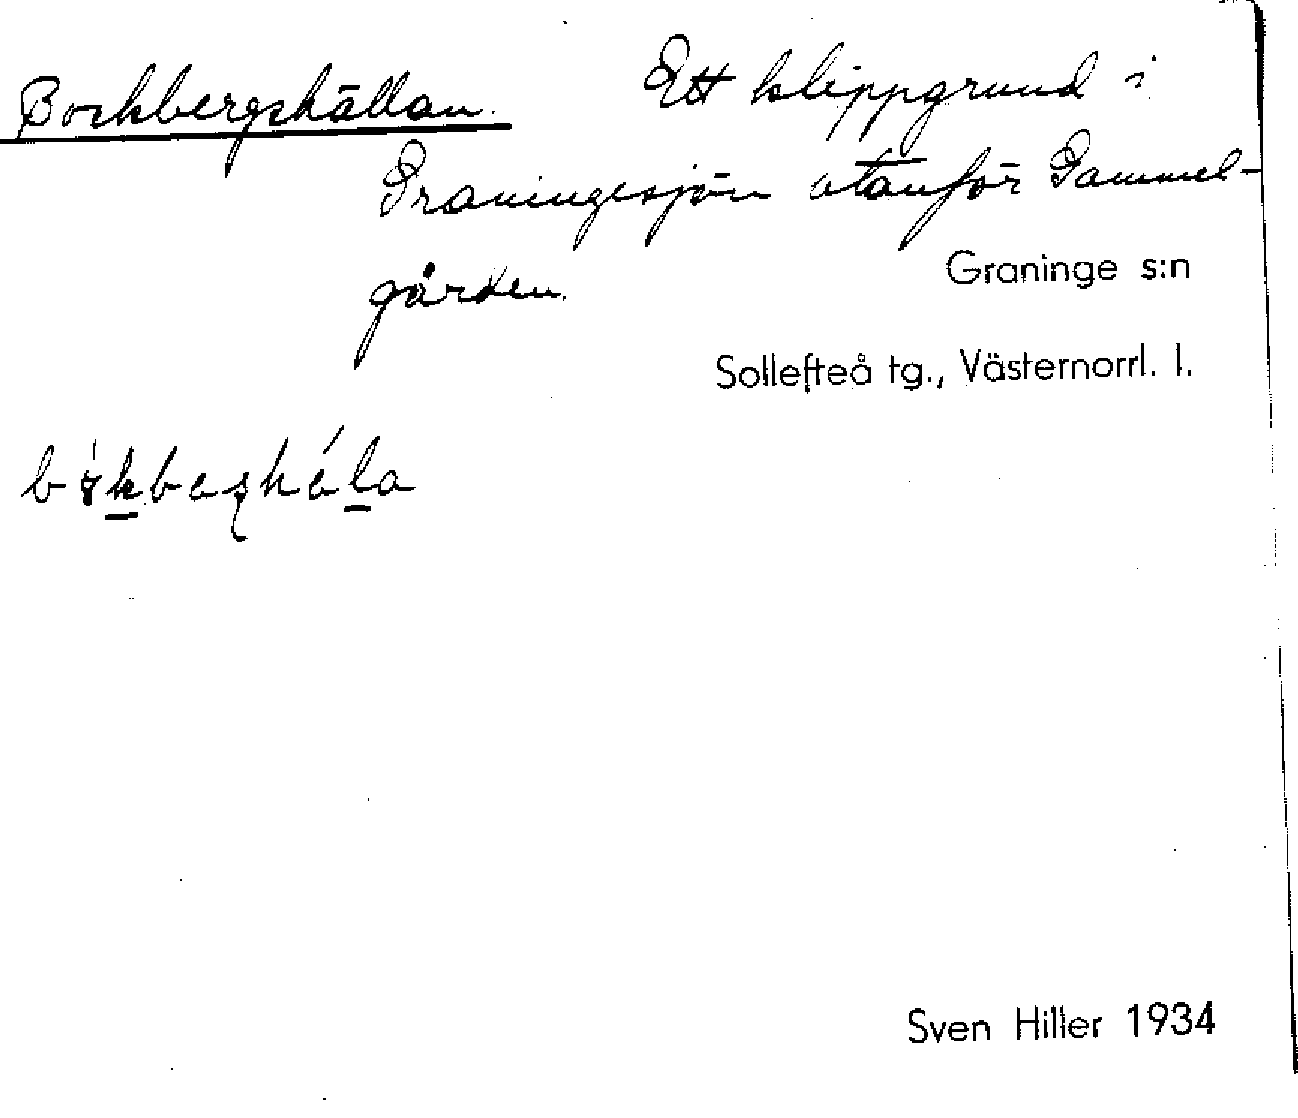 Bockbergshällan. Ett klippgrund i
Graningesjön utanför Gammel-
gården.
Graninge s:n
Sollefteå tg., Västernorrl. l.
Sven Hiller 1934